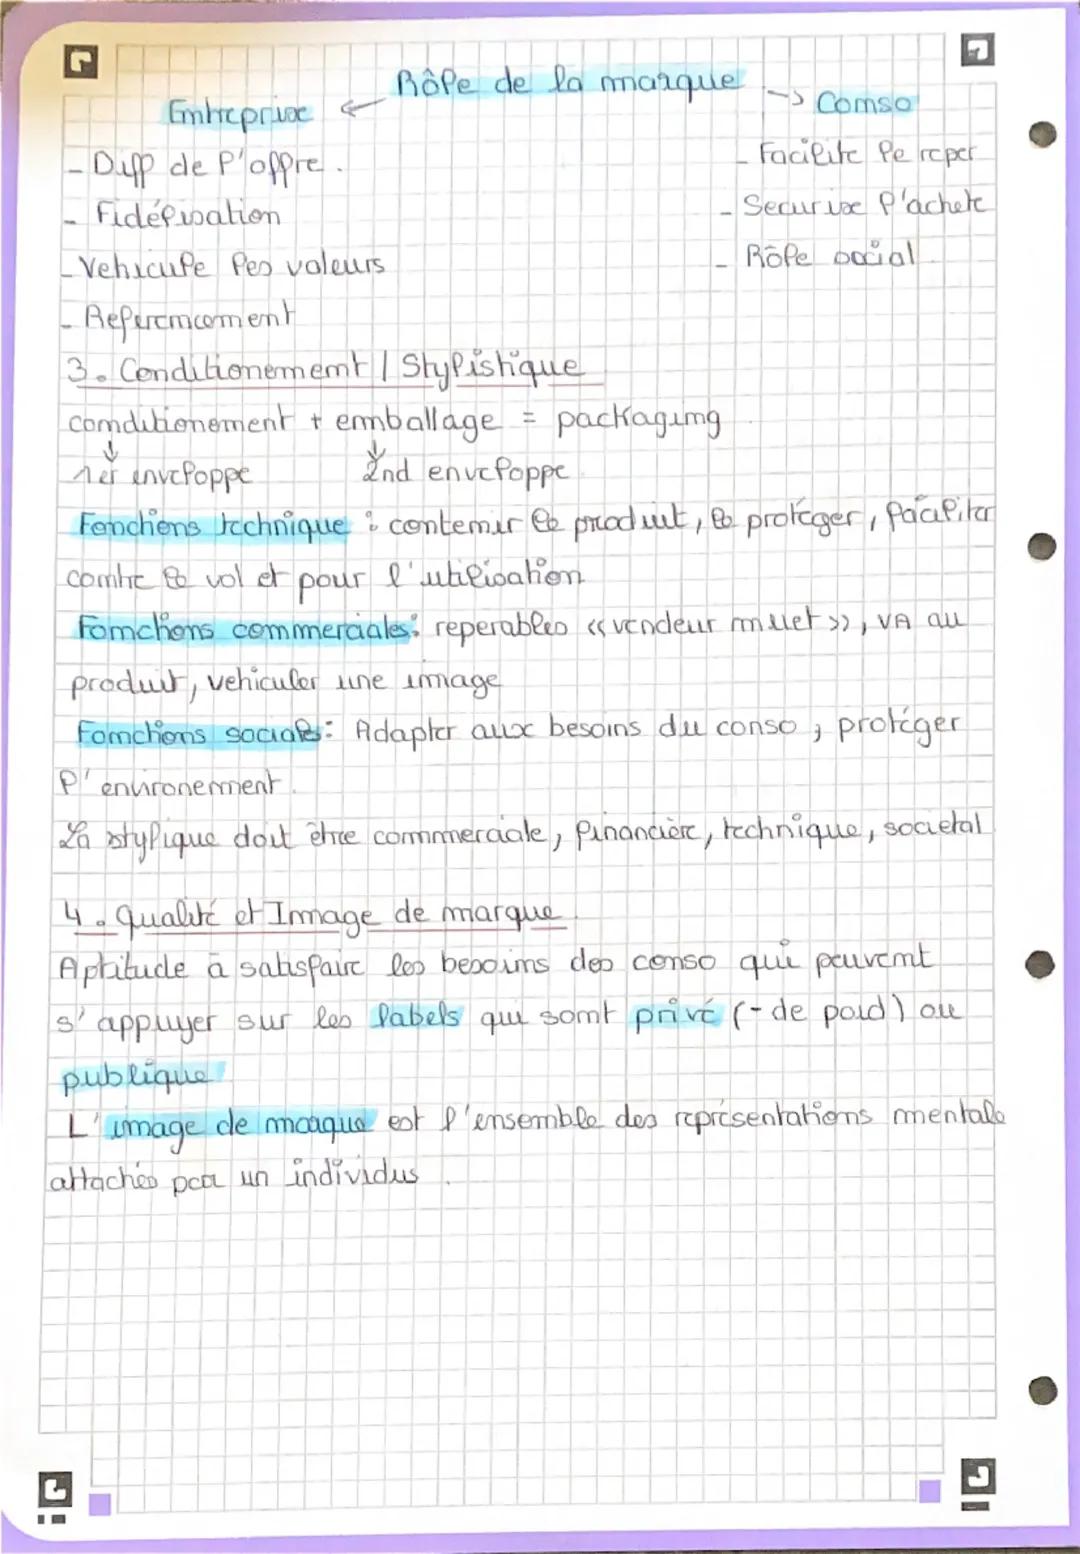 Rôle de la marque
Entreprise ← → Conso
- Diff de l'offre.
- Facilite le reper
- Fidélisation
- Securise l'achete
- Vehicule les valeurs
- Rôle social
- Referencement
3. Conditionement / Stylistique
conditionement + emballage = packaging
↓ ↓
1er enveloppe 2nd enveloppe
Fonctions technique : contenir le produit, le protéger, faciliter
contre le vol et pour l'utilisation
Fonctions commerciales: reperables «vendeur muet», VA au
produit, vehiculer une image
Fonctions sociales: Adapter aux besoins du conso, protéger
l'environement.
La stylique doit être commerciale, financière, technique, societal
4. Qualité et Image de marque
Aptitude à satisfaire les besoins des conso qui peuvent
s'appuyer sur les labels qui sont privé (- de poid) ou
publique
L'image de marque est l'ensemble des représentations mentale
attachés par un individus.